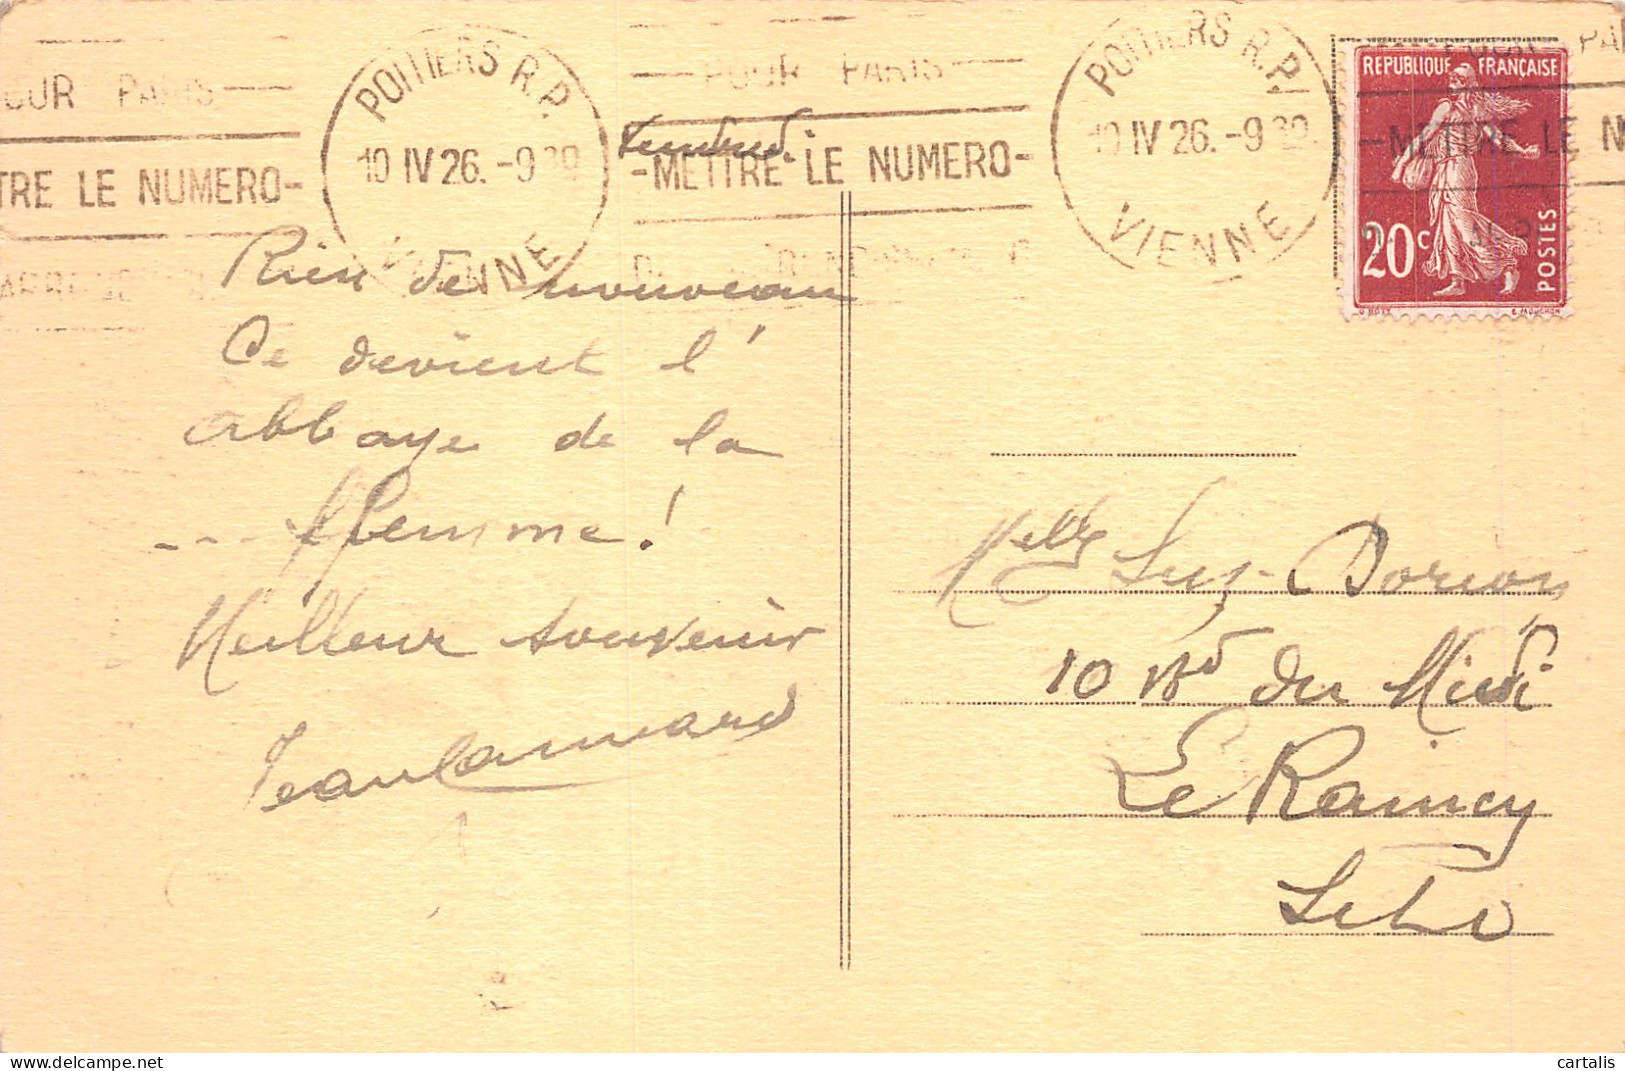 POUR PARIS
METTRE LE NUMERO
POITIERS R.P.
10 IV 26. -9 30
VIENNE
POUR PARIS
-METTRE LE NUMERO-
POITIERS R.P.
10 IV 26. -9 30
VIENNE
PA
-METTRE LE N
REPUBLIQUE FRANÇAISE
20c
POSTES
E. MOUCHON
Vendredi.
Rien de nouveau
Ce devient l'
abbaye de la
--- flemme!
Meilleur souvenir
Jean
Melle Suz. Dorion
10 Bd du Midi
Le Raincy
S et O
cartalis
www.delcampe.net